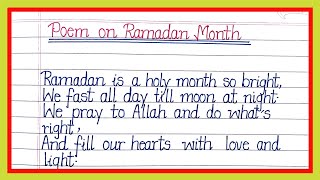 Poem on Ramadan Month
Ramadan is a holy month so bright,
We fast all day till moon at night.
We pray to Allah and do what's
right,
And fill our hearts with love and
light.